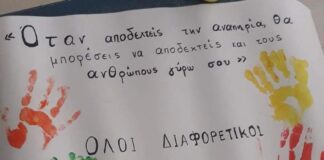 «Όταν αποδεχτείς την αναπηρία, θα
μπορέσεις να αποδεχτείς και τους
ανθρώπους γύρω σου»
ΟΛΟΙ ΔΙΑΦΟΡΕΤΙΚΟΙ